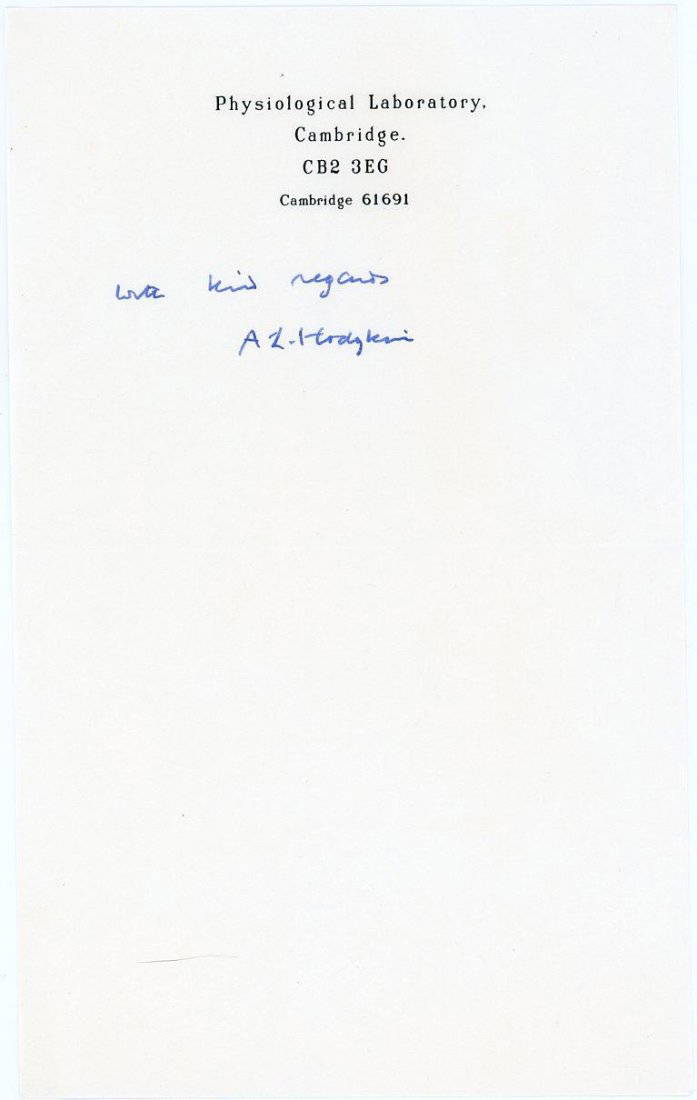 Physiological Laboratory,
Cambridge.
CB2 3EG
Cambridge 61691
with kind regards
A L. Hodgkin